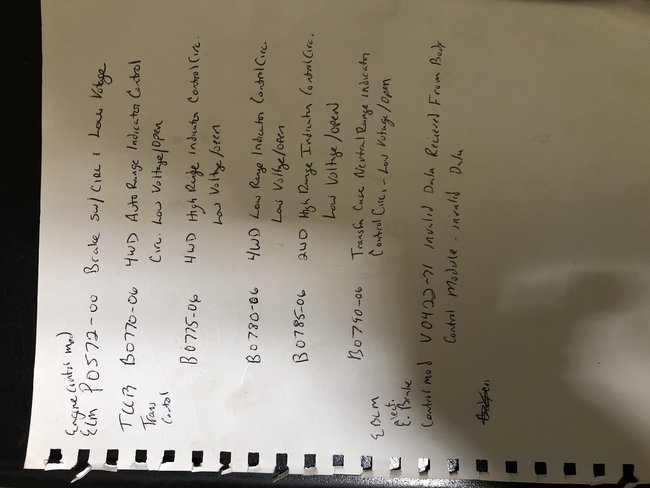 Engine Control Mod
ECM P0572-00 Brake Sw/Circ 1 Low Voltage
TCCM B0770-06 4WD Auto Range Indicator Control
Trans. Circ. Low Voltage/Open
Control
B0775-06 4WD High Range indicator Control Circ.
Low Voltage/open
B0780-06 4WD Low Range Indicator Control Circ.
Low Voltage/open
B0785-06 2WD High Range Indicator Control Circ.
Low Voltage/open
B0790-06 Transfer Case Neutral Range indicator
Control Circ. - Low Voltage/Open
EBCM
elect.
C. Brake
Control mod V0422-71 invalid Data Recieved From Body
Control Module - invalid Data